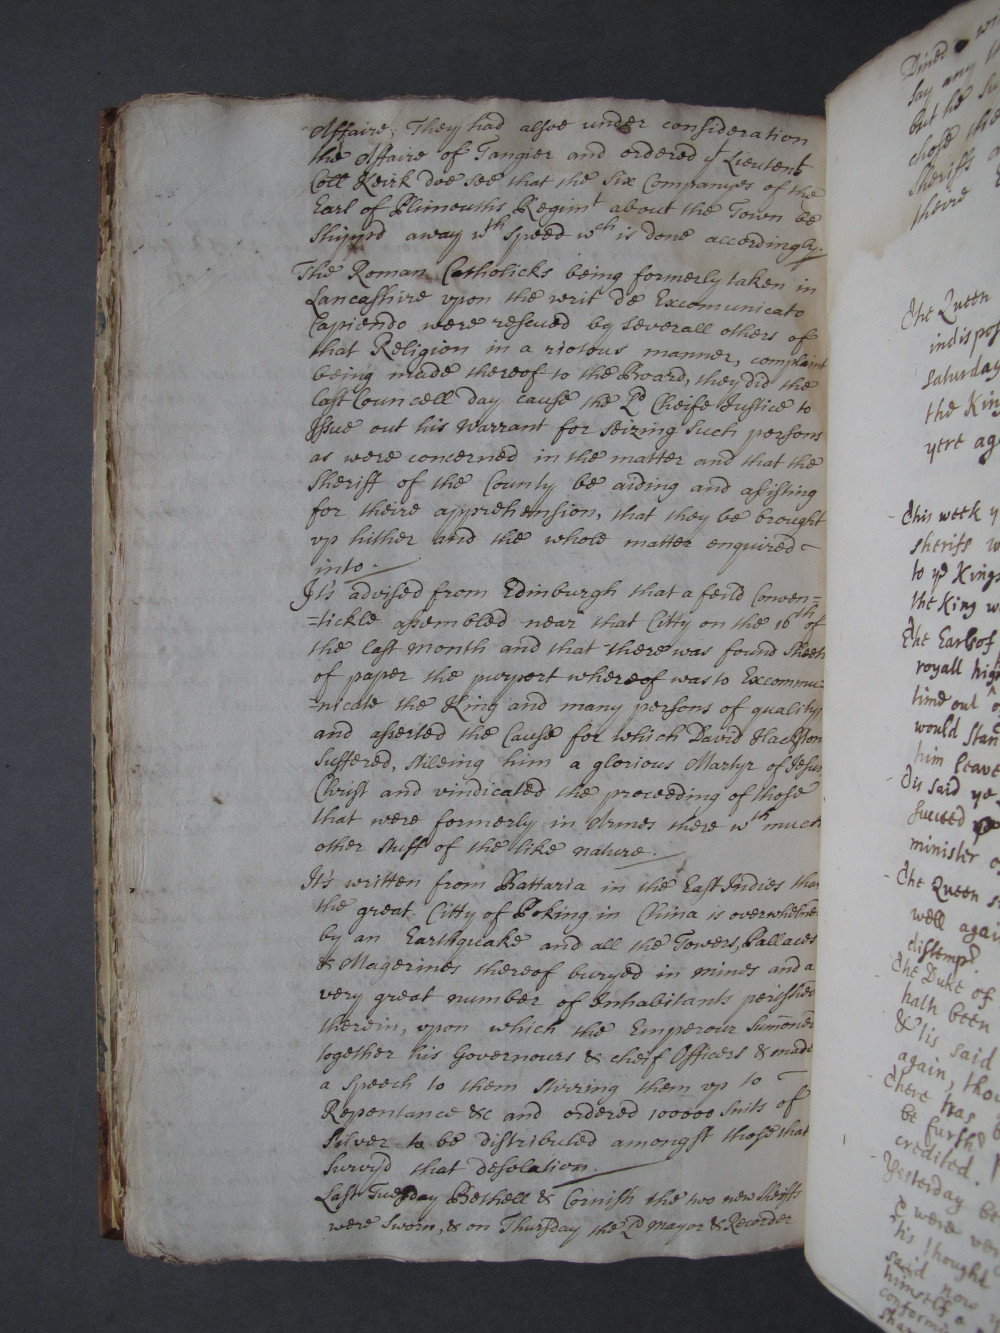 Affaire; They had alsoe under consideration
the Affaire of Tangier and ordered yt Lieutent
Coll Keirk doe see that the Six Companyes of the
Earl of Plimouths Regimt about the Town be
Shipp'd away wth speed wch is done accordingly.
The Roman Catholicks being formerly taken in
Lancashire vpon the writt de Excomunicato
Capiendo were rescued by severall others of
that Religion in a riotous manner, complaint
being made thereof to the Board, they did the
last Councell day cause the Ld Cheife Justice to
Issue out his Warrant for seizing such persons
as were concerned in the matter and that the
Sheriff of the County be aiding and assisting
for theire apprehension, that they be brought
vp hither and the whole matter enquired
into.
It's advised from Edinburgh that a feild Conven=
=tickle assembled near that Citty on the 16th of
the last month and that there was found sheets
of paper the purport whereof was to Excommu=
=nicate the King and many persons of quality
and asserted the Cause for which David Hackston
suffered, stileing him a glorious Martyr of Jesus
Christ and vindicated the proceeding of those
that were formerly in Armes there wth much
other stuff of the like nature.
It's written from Battaria in the East Indies that
the great Citty of Poking in China is overwhelmed
by an Earthquake and all the Towers, Pallaces
& Magerines thereof buryed in mines and a
very great number of Inhabitants perished
therein, vpon which the Emperour Summoned
together his Governours & cheif Officers & made
a speech to them stirring them vp to
Repentance &c and ordered 100000 Suits of
Silver to be distributed amongst those that
Surviv'd that desolation.
Last Tuesday Bethell & Cornish the two new Sheriffs
were sworn, & on Thursday the Ld Mayor & Recorder
Dined
say any
but he
chose the
Sheriffs
theire
The Queen
indispos
Saturday
the King
yere aga
This week y
sheriffs w
to ye Kings
the King w
The Earls of
royall high
time out
would stan
him leave
Tis said ye
succeed
minister of
The Queen
well again
distempr.
The Duke of
hath been
& tis said
again, thou
There was
be furthr
credited.
Yesterday be
were ver
tis thought
said now
himself a
conformi
shar